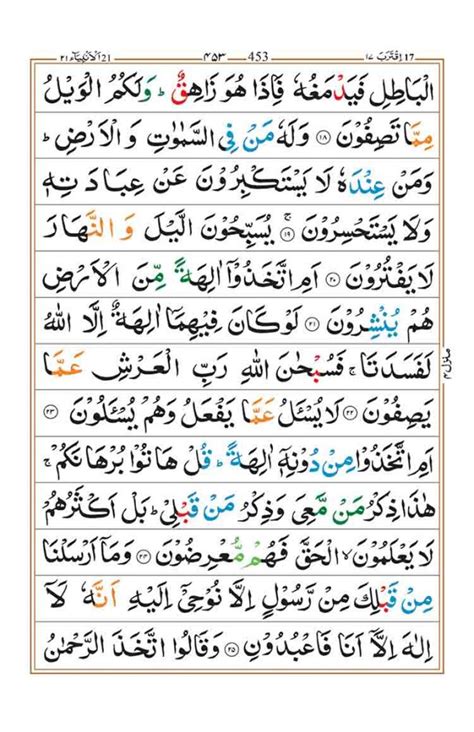 اقترب ١٧ 17 453 ٤٥٣ الانبيآء ٢١ 21
الْبَاطِلِ فَيَدْمَغُهٗ فَاِذَا هُوَ زَاهِقٌ ؕ وَلَكُمُ الْوَيْلُ
مِمَّا تَصِفُوْنَ ﴿۱۸﴾ وَلَهٗ مَنْ فِی السَّمٰوٰتِ وَ الْاَرْضِ ؕ
وَمَنْ عِنْدَهٗ لَا يَسْتَكْبِرُوْنَ عَنْ عِبَادَتِهٖ
وَلَا يَسْتَحْسِرُوْنَ ۚ﴿۱۹﴾ يُسَبِّحُوْنَ الَّيْلَ وَ النَّهَارَ
لَا يَفْتُرُوْنَ ﴿۲۰﴾ اَمِ اتَّخَذُوْۤا اٰلِهَةً مِّنَ الْاَرْضِ
هُمْ يُنْشِرُوْنَ ﴿۲۱﴾ لَوْ كَانَ فِيْهِمَاۤ اٰلِهَةٌ اِلَّا اللّٰهُ
لَفَسَدَتَا ۚ فَسُبْحٰنَ اللّٰهِ رَبِّ الْعَرْشِ عَمَّا
يَصِفُوْنَ ﴿۲۲﴾ لَا يُسْئَلُ عَمَّا يَفْعَلُ وَهُمْ يُسْئَلُوْنَ ﴿۲۳﴾
اَمِ اتَّخَذُوْا مِنْ دُوْنِهٖۤ اٰلِهَةً ؕ قُلْ هَاتُوْا بُرْهَانَكُمْ ۚ
هٰذَا ذِكْرُ مَنْ مَّعِیَ وَذِكْرُ مَنْ قَبْلِیْ ؕ بَلْ اَكْثَرُهُمْ
لَا يَعْلَمُوْنَ ۙ الْحَقَّ فَهُمْ مُّعْرِضُوْنَ ﴿۲۴﴾ وَمَاۤ اَرْسَلْنَا
مِنْ قَبْلِكَ مِنْ رَّسُوْلٍ اِلَّا نُوْحِیْۤ اِلَيْهِ اَنَّهٗ لَاۤ
اِلٰهَ اِلَّاۤ اَنَا فَاعْبُدُوْنِ ﴿۲۵﴾ وَقَالُوا اتَّخَذَ الرَّحْمٰنُ
منزل ۴